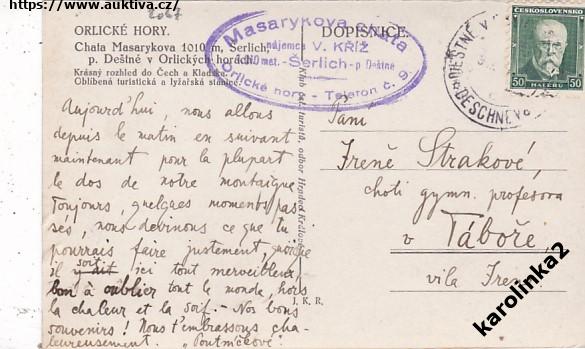 https://www.auktiva.cz/
2067
ORLICKÉ HORY.
Chata Masarykova 1010 m, Šerlich,
p. Deštné v Orlických horách.
Krásný rozhled do Čech a Kladska.
Oblíbená turistická a lyžařská stanice.
DOPISNICE.
Masarykova chata
nájemce V. KŘÍŽ
Šerlich - p Deštné
Orlické hory - Telefon č. 9.
ČESKOSLOVENSKO
50 50
HALÉŘŮ
DEŠTNÉ V
DESCHNEY
Aujourd'hui, nous allons
depuis le matin en suivant
maintenant pour la plupart
le dos de notre montaigne
Toujours, quelques moments pas-
sés, nous devinons ce que tu
pourrais faire justement, quoique
il soit ici tout merveilleux,
bon à oublier tout le monde, hors
la chaleur et la soif. - Nos bons
souvenirs! Nous t'embrassons cha-
leureusement. "Poutníčkové".
Klub čsl. turistů, odbor Hradec Králové
J. K. R.
Paní
Ireně Strakové,
choti gymn. profesora
v Táboře,
vila Irena
karolinka2